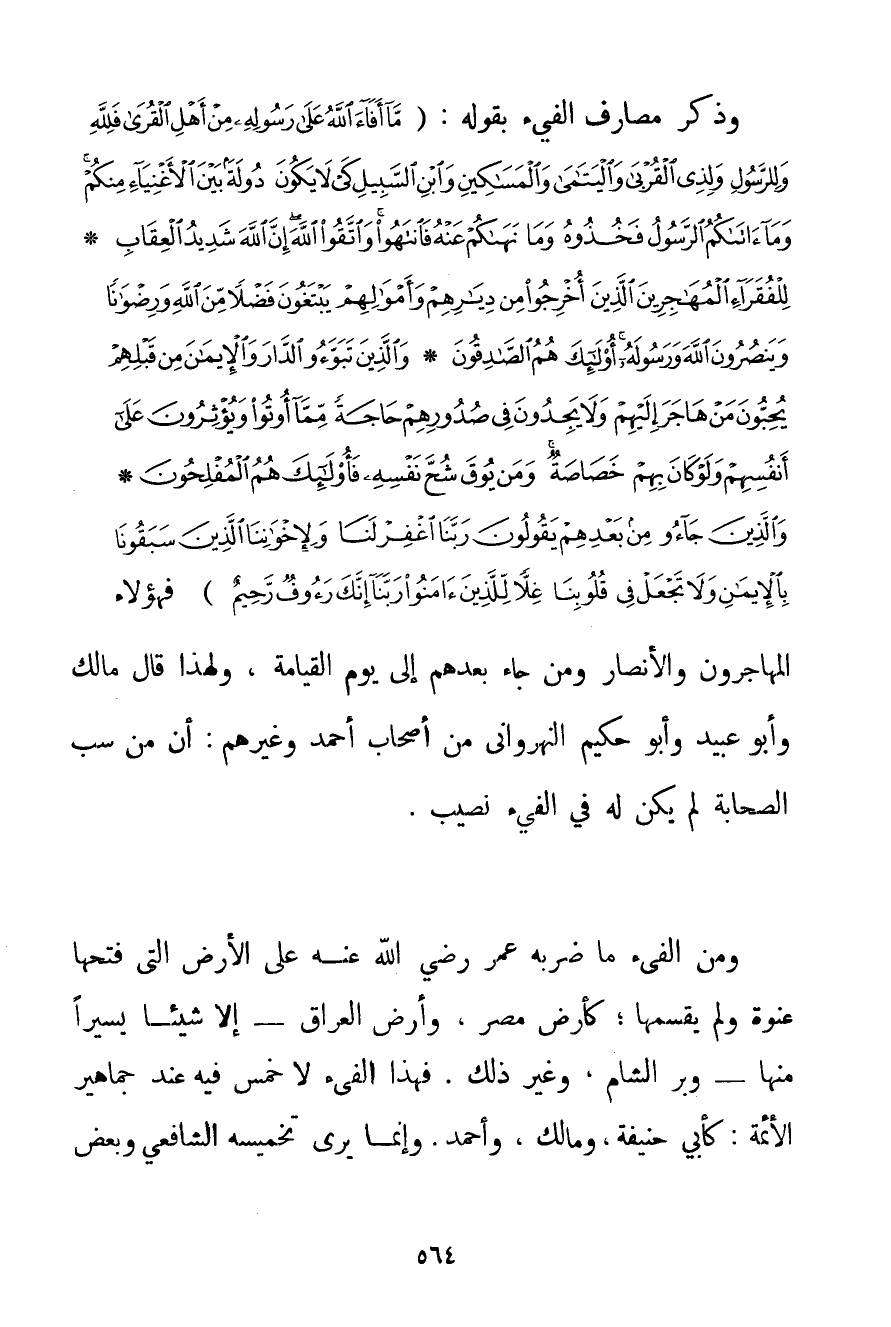 وذكر مصارف الفيء بقوله : ( مَّآ أَفَآءَ ٱللَّهُ عَلَىٰ رَسُولِهِۦ مِنۡ أَهۡلِ ٱلۡقُرَىٰ فَلِلَّهِ
وَلِلرَّسُولِ وَلِذِي ٱلۡقُرۡبَىٰ وَٱلۡيَتَٰمَىٰ وَٱلۡمَسَٰكِينِ وَٱبۡنِ ٱلسَّبِيلِ كَيۡ لَا يَكُونَ دُولَةَۢ بَيۡنَ ٱلۡأَغۡنِيَآءِ مِنكُمۡۚ
وَمَآ ءَاتَىٰكُمُ ٱلرَّسُولُ فَخُذُوهُ وَمَا نَهَىٰكُمۡ عَنۡهُ فَٱنتَهُواْۚ وَٱتَّقُواْ ٱللَّهَۖ إِنَّ ٱللَّهَ شَدِيدُ ٱلۡعِقَابِ *
لِلۡفُقَرَآءِ ٱلۡمُهَٰجِرِينَ ٱلَّذِينَ أُخۡرِجُواْ مِن دِيَٰرِهِمۡ وَأَمۡوَٰلِهِمۡ يَبۡتَغُونَ فَضۡلٗا مِّنَ ٱللَّهِ وَرِضۡوَٰنٗا
وَيَنصُرُونَ ٱللَّهَ وَرَسُولَهُۥٓۚ أُوْلَٰٓئِكَ هُمُ ٱلصَّٰدِقُونَ * وَٱلَّذِينَ تَبَوَّءُو ٱلدَّارَ وَٱلۡإِيمَٰنَ مِن قَبۡلِهِمۡ
يُحِبُّونَ مَنۡ هَاجَرَ إِلَيۡهِمۡ وَلَا يَجِدُونَ فِي صُدُورِهِمۡ حَاجَةٗ مِّمَّآ أُوتُواْ وَيُؤۡثِرُونَ عَلَىٰٓ
أَنفُسِهِمۡ وَلَوۡ كَانَ بِهِمۡ خَصَاصَةٞۚ وَمَن يُوقَ شُحَّ نَفۡسِهِۦ فَأُوْلَٰٓئِكَ هُمُ ٱلۡمُفۡلِحُونَ *
وَٱلَّذِينَ جَآءُو مِنۢ بَعۡدِهِمۡ يَقُولُونَ رَبَّنَا ٱغۡفِرۡ لَنَا وَلِإِخۡوَٰنِنَا ٱلَّذِينَ سَبَقُونَا
بِٱلۡإِيمَٰنِ وَلَا تَجۡعَلۡ فِي قُلُوبِنَا غِلّٗا لِّلَّذِينَ ءَامَنُواْ رَبَّنَآ إِنَّكَ رَءُوفٞ رَّحِيمٌ ) فهؤلاء
المهاجرون والأنصار ومن جاء بعدهم إلى يوم القيامة ، ولهذا قال مالك
وأبو عبيد وأبو حكيم النهروانى من أصحاب أحمد وغيرهم : أن من سب
الصحابة لم يكن له في الفيء نصيب .
ومن الفيء ما ضربه عمر رضي الله عنه على الأرض التى فتحها
عنوة ولم يقسمها ؛ كأرض مصر ، وأرض العراق — إلا شيئا يسيراً
منها — وبر الشام ، وغير ذلك . فهذا الفيء لا خمس فيه عند جماهير
الأئمة : كأبي حنيفة ، ومالك ، وأحمد . وإنما يرى تخميسه الشافعي وبعض
٥٦٤